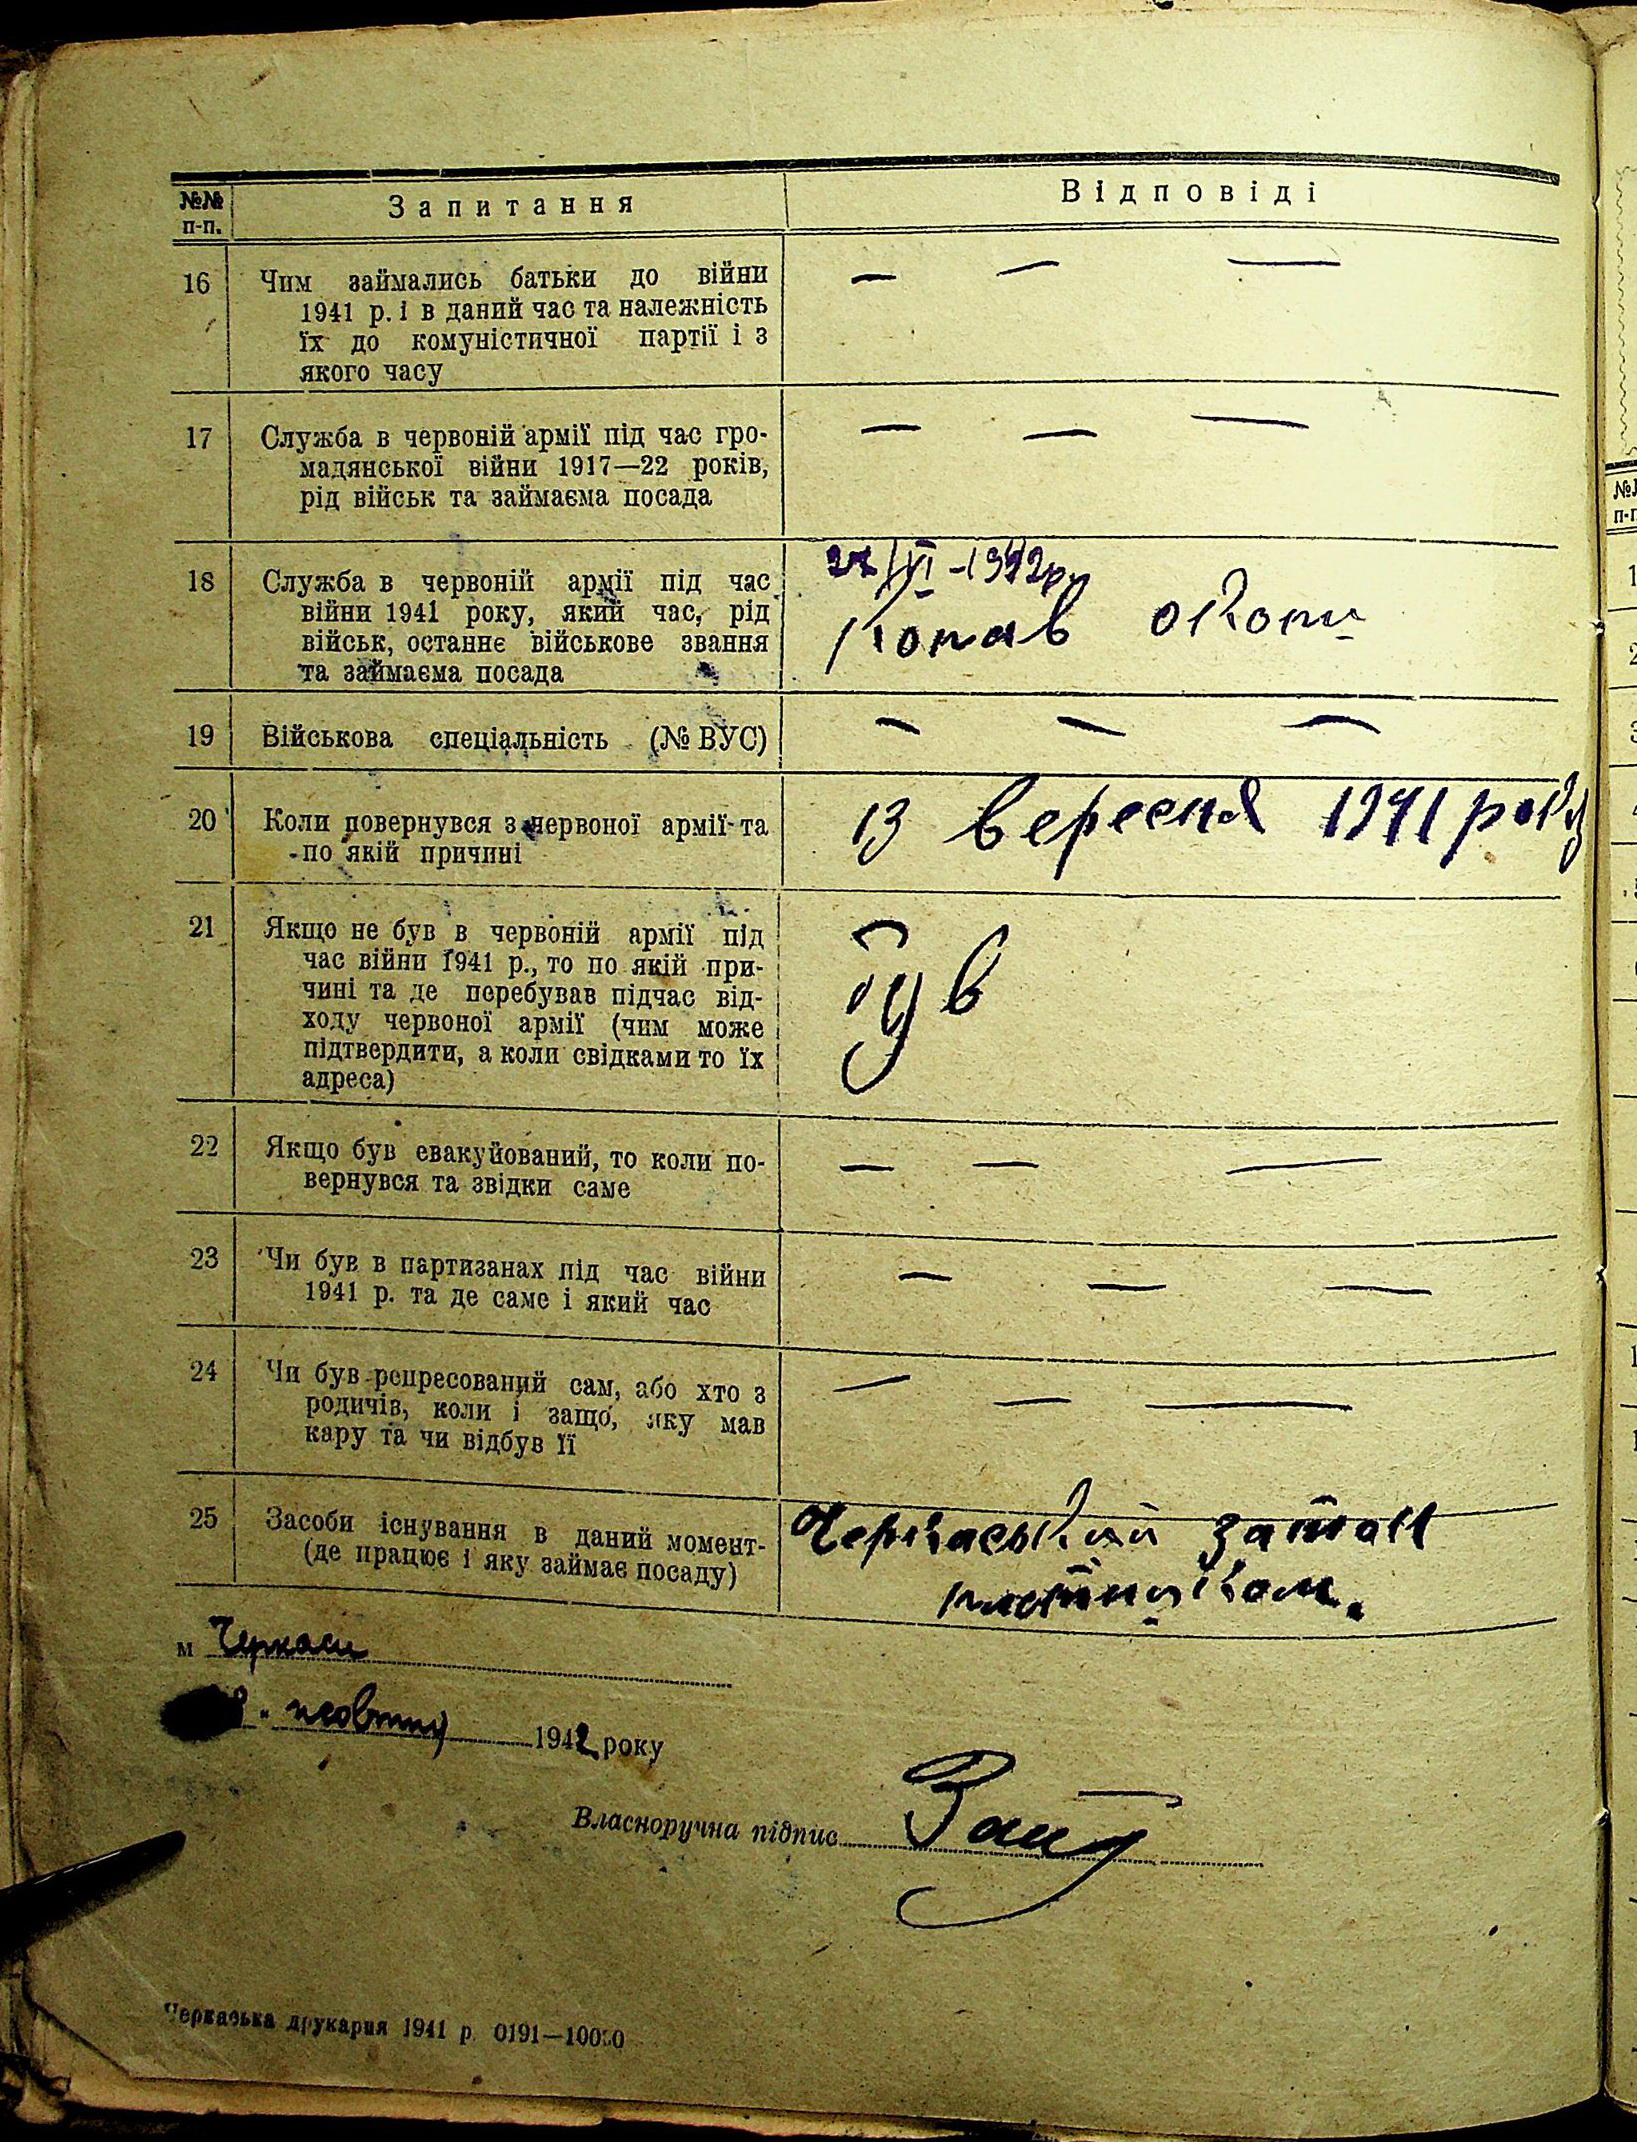 №№ п-п. Запитання Відповіді
16 Чим займались батьки до війни — — —
1941 р. і в даний час та належність
їх до комуністичної партії і з
якого часу
17 Служба в червоній армії під час гро- — — —
мадянської війни 1917—22 років,
рід військ та займаєма посада
27/VI-1942р.
18 Служба в червоній армії під час
війни 1941 року, який час, рід Копав окопи
військ, останнє військове звання
та займаєма посада
19 Військова спеціальність (№ ВУС) — — —
20 Коли повернувся з червоної армії та 13 вересня 1941 року
по якій причині
21 Якщо не був в червоній армії під був
час війни 1941 р., то по якій при-
чині та де перебував підчас від-
ходу червоної армії (чим може
підтвердити, а коли свідками то їх
адреса)
22 Якщо був евакуйований, то коли по- — — —
вернувся та звідки саме
23 Чи був в партизанах під час війни — — —
1941 р. та де саме і який час
24 Чи був репресований сам, або хто з — — —
родичів, коли і защо, яку мав
кару та чи відбув її
25 Засоби існування в даний момент- Черкаський затон
(де працює і яку займає посаду) плотником.
м Черкаси
жовтня 1942 року
Власноручна підпис
Черкаська друкарня 1941 р. 0191—10000
№№
п-п